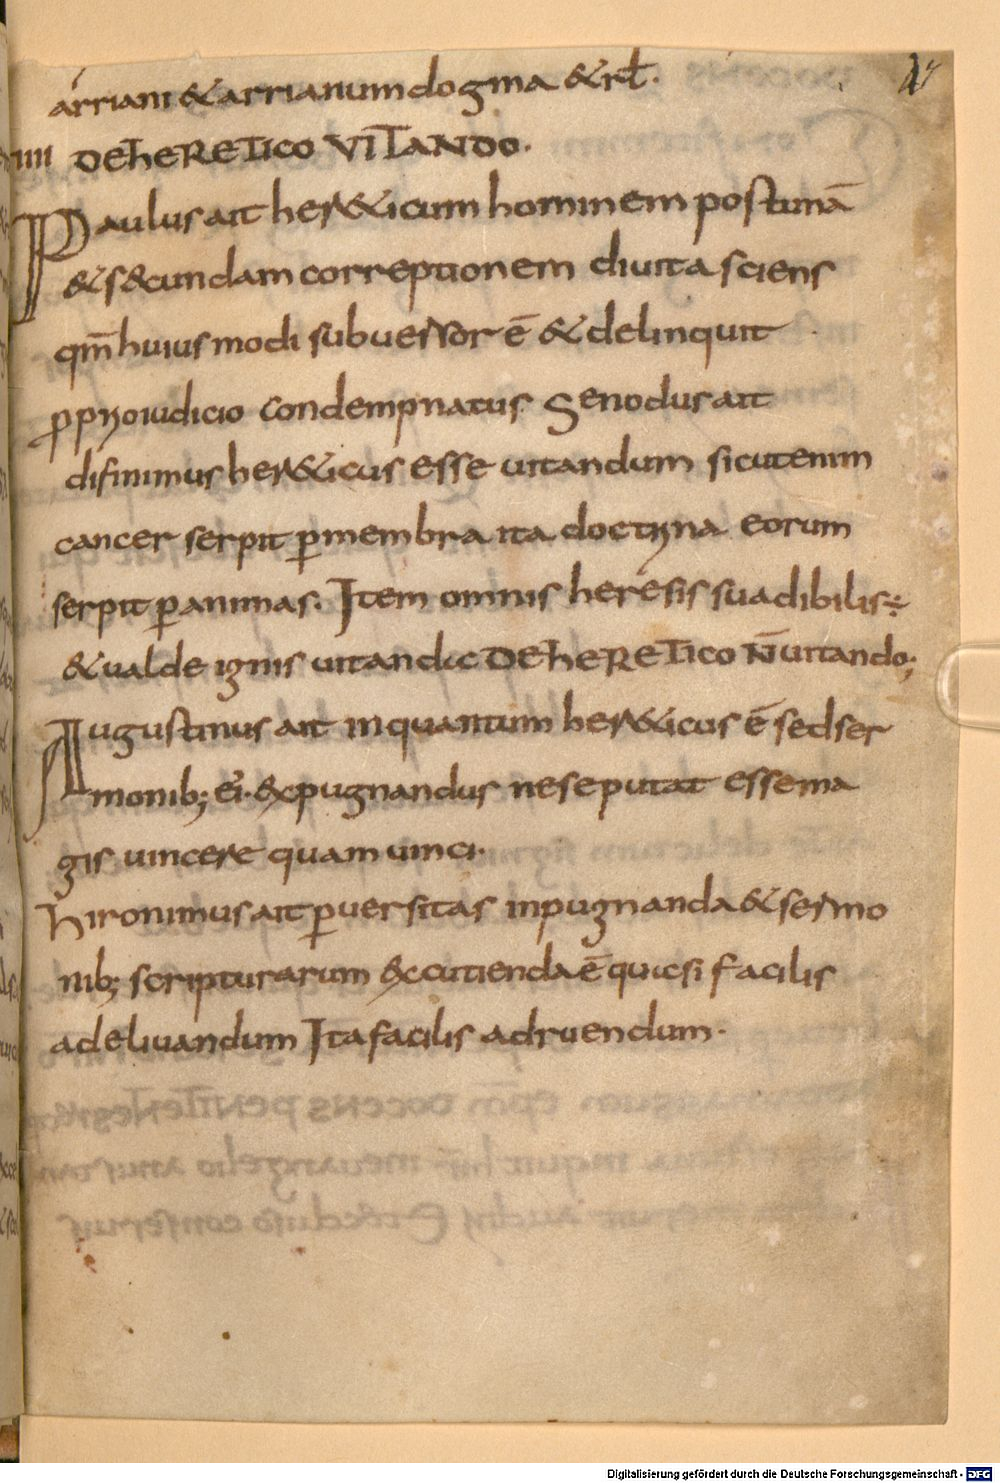 arriani & arrianum dogma & rł.
IIII DE hERETICO VITANDO.
Paulus ait her&icum hominem post unā
& s&cundam correptionem diuita sciens
qm̄ huius modi subuersor ē & delinquit
ꝓprio iudicio condempnatus Senodus ait
difinimus her&icus esse uitandum sicut enim
cancer serpit ꝑ membra ita doctrina eorum
serpit ꝑ animas. Item omnis heresis suadibilis ÷
& ualde ignis uitandic DE hERETICO N̄ uitando;
Augustinus ait inquantum her&icus ē sed ser
monib; ei. expugnandus ne se putat esse ma
gis uincere quam uinci.
hironimus ait ꝑuersitas inpugnanda & sermo
nib; scripturarum excutienda ē quicsi facilis
adeliuandum Ita facilis adruendum.
Digitalisierung gefördert durch die Deutsche Forschungsgemeinschaft - DFG